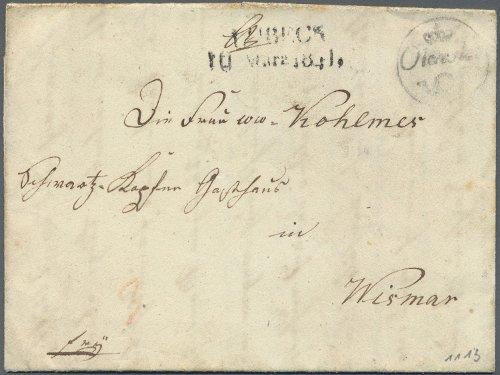 LÜBECK
10 März 1841.
Die Frau ww. Kohlmes
Schwartz-Kopfen Gasthaus
in
Wismar
frey
1113